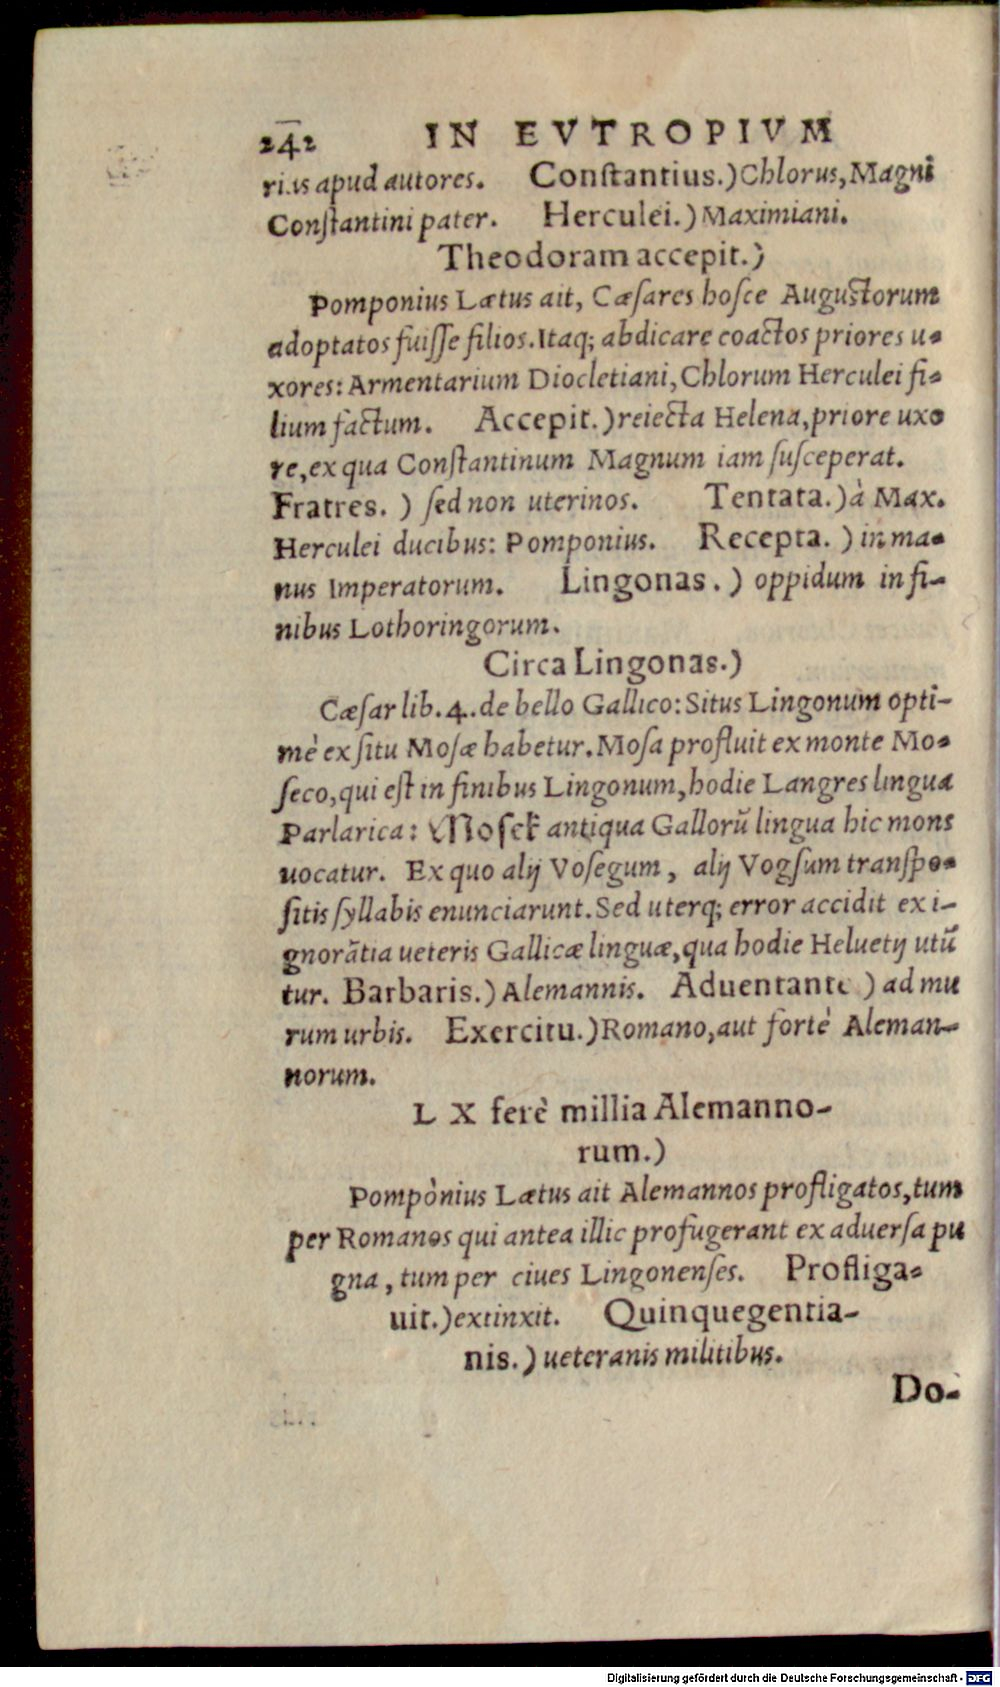 242 IN EVTROPIVM
rius apud autores. Conſtantius.) Chlorus, Magni
Conſtantini pater. Herculei.) Maximiani.
Theodoram accepit.)
Pomponius Lætus ait, Cæſares hoſce Auguſtorum
adoptatos fuiſſe filios. Itaq; abdicare coactos priores u-
xores: Armentarium Diocletiani, Chlorum Herculei fi-
lium factum. Accepit.) reiecta Helena, priore uxo
re, ex qua Conſtantinum Magnum iam ſuſceperat.
Fratres.) ſed non uterinos. Tentata.) à Max.
Herculei ducibus: Pomponius. Recepta.) in ma-
nus Imperatorum. Lingonas.) oppidum in fi-
nibus Lothoringorum.
Circa Lingonas.)
Cæſar lib. 4. de bello Gallico: Situs Lingonum opti-
mè ex ſitu Moſæ habetur. Moſa profluit ex monte Mo-
ſeco, qui eſt in finibus Lingonum, hodie Langres lingua
Parlarica: Moſek antiqua Gallorū lingua hic mons
uocatur. Ex quo alij Voſegum, alij Vogſum tranſpo-
ſitis ſyllabis enunciarunt. Sed uterq; error accidit ex i-
gnorātia ueteris Gallicæ linguæ, qua hodie Heluetij utū
tur. Barbaris.) Alemannis. Aduentante) ad mu
rum urbis. Exercitu.) Romano, aut fortè Aleman-
norum.
LX ferè millia Alemanno-
rum.)
Pompònius Lætus ait Alemannos profligatos, tum
per Romanos qui antea illic profugerant ex aduerſa pu
gna, tum per ciues Lingonenſes. Profliga-
uit.) extinxit. Quinquegentia-
nis.) ueteranis militibus.
Do-
Digitalisierung gefördert durch die Deutsche Forschungsgemeinschaft - DFG